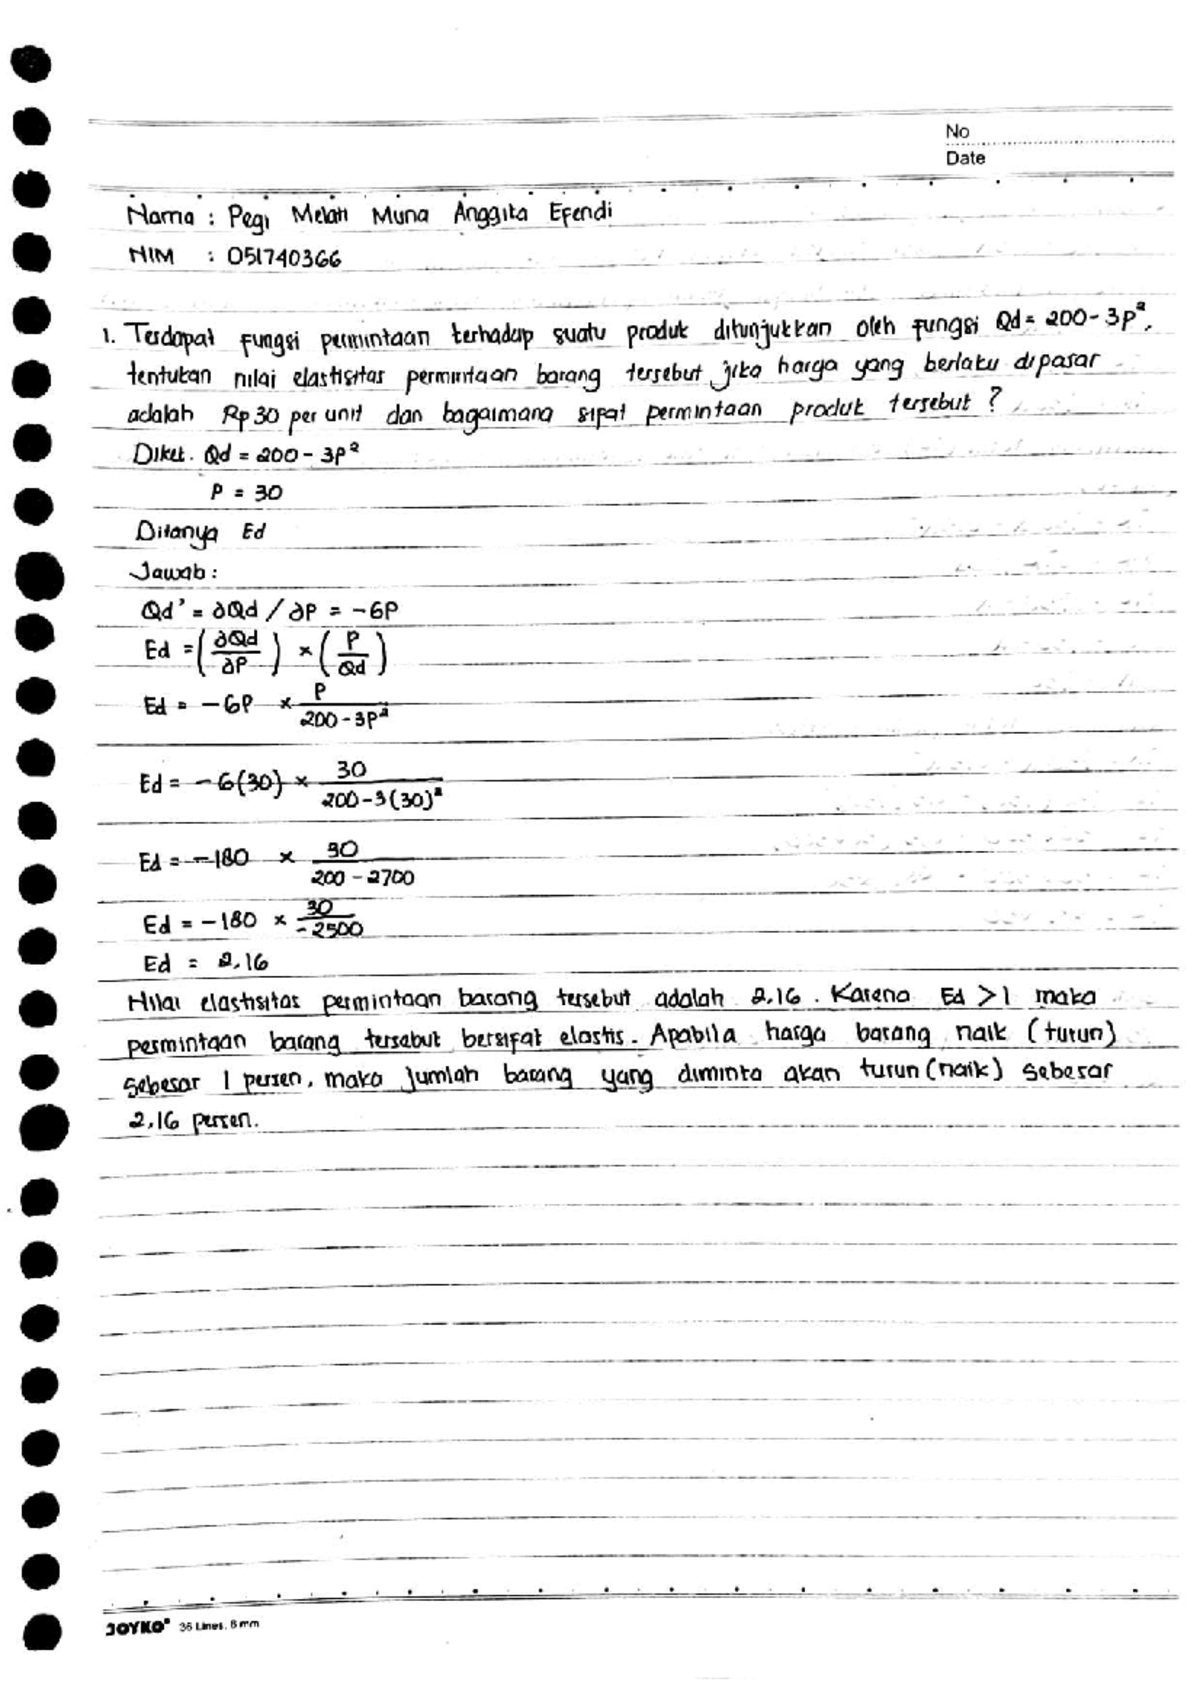 No
Date
Nama : Pegi Melati Muna Anggita Efendi
NIM : 051740366
1. Terdapat fungsi permintaan terhadap suatu produk ditunjukkan oleh fungsi Qd = 200 - 3P²,
tentukan nilai elastisitas permintaan barang tersebut jika harga yang berlaku dipasar
adalah Rp 30 per unit dan bagaimana sifat permintaan produk tersebut ?
Diket. Qd = 200 - 3P²
P = 30
Ditanya Ed
Jawab :
Qd' = ∂Qd / ∂P = -6P
Ed = (∂Qd/∂P) × (P/Qd)
Ed = -6P × P/(200 - 3P²)
Ed = -6(30) × 30/(200 - 3(30)²)
Ed = -180 × 30/(200 - 2700)
Ed = -180 × 30/-2500
Ed = 2,16
Nilai elastisitas permintaan barang tersebut adalah 2.16 . Karena Ed > 1 maka
permintaan barang tersebut bersifat elastis. Apabila harga barang naik (turun)
sebesar 1 persen, maka jumlah barang yang diminta akan turun (naik) sebesar
2,16 persen.
JOYKO® 36 Lines, 8 mm